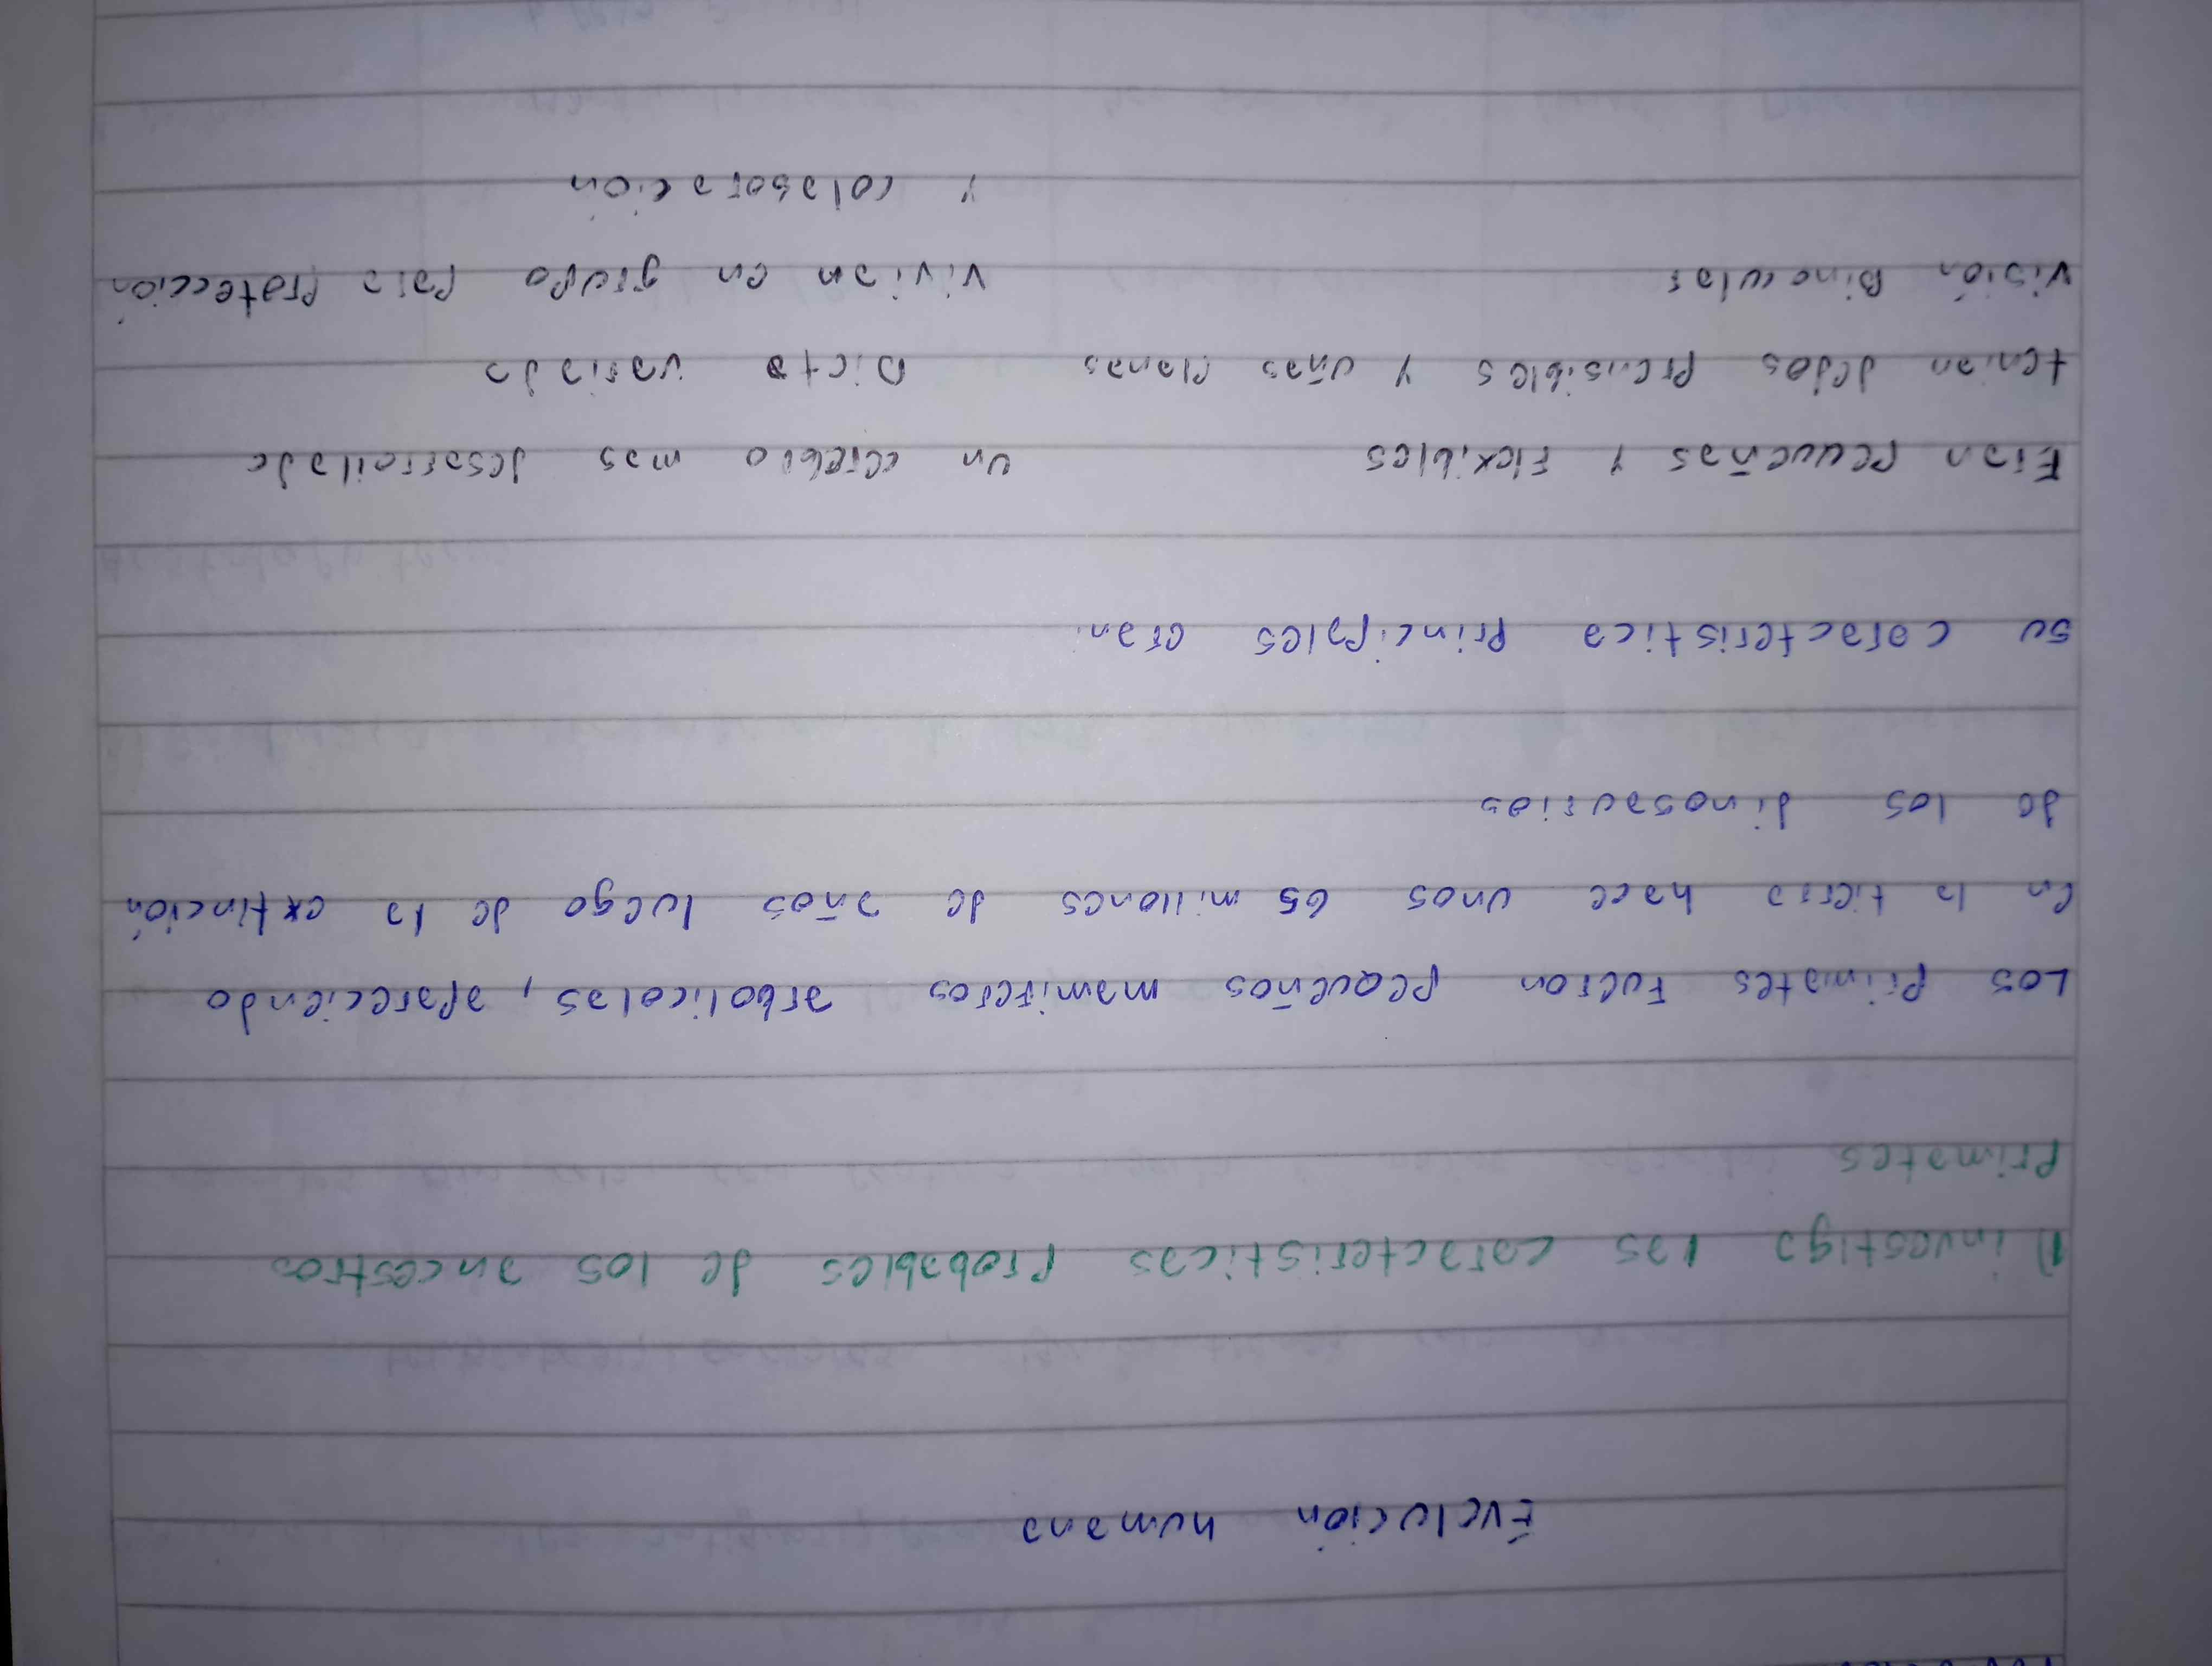 Evolución humana
1) investiga las caracteristicas Probables de los ancestros
Primates
Los Primates Fueron Pequeños mamiferos arbolicolas, apareciendo
en la tierra hace unos 65 millones de años luego de la extinción
de los dinosaurios
su caracteristica Principales eran:
Eran Pequeñas y Flexibles un cerebro mas desarrollado
tenian dedos Prensibles y uñas Planas Dieta variada
Visión Binocular Vivian en grupo Para Protección
y colaboración